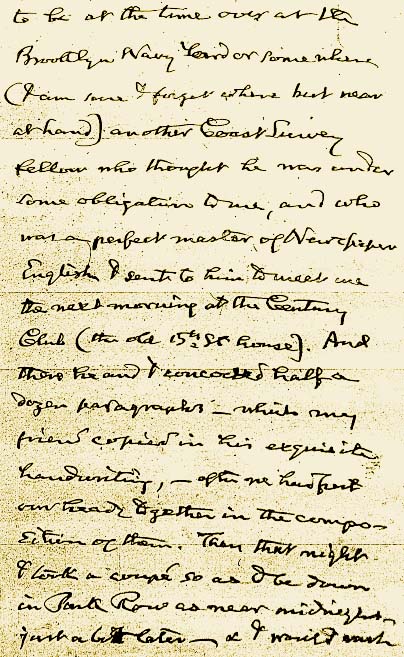 to be at the time over at the
Brooklyn Navy Yard or somewhere
(I am sure I forget where but near
at hand) another Coast Survey
fellow who thought he was under
some obligation to me, and who
was a perfect master of Newspaper
English I sent to him to meet me
the next morning at the Century
Club (the old 15th St house). And
there he and I concocted half a
dozen paragraphs — which my
friend copied in his exquisite
handwriting, — after we had put
our heads together in the compo-
sition of them. Then that night
I took a coupé so as to be down
in Park Row as near midnight —
just a bit later — & I would